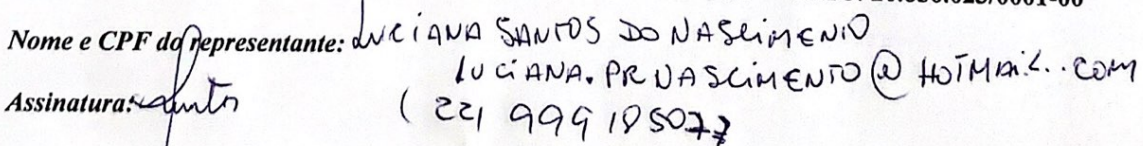 Nome e CPF do representante: LUCIANA SANTOS DO NASCIMENTO
LUCIANA.PRNASCIMENTO@HOTMAIL.COM
Assinatura:
(22) 999185077